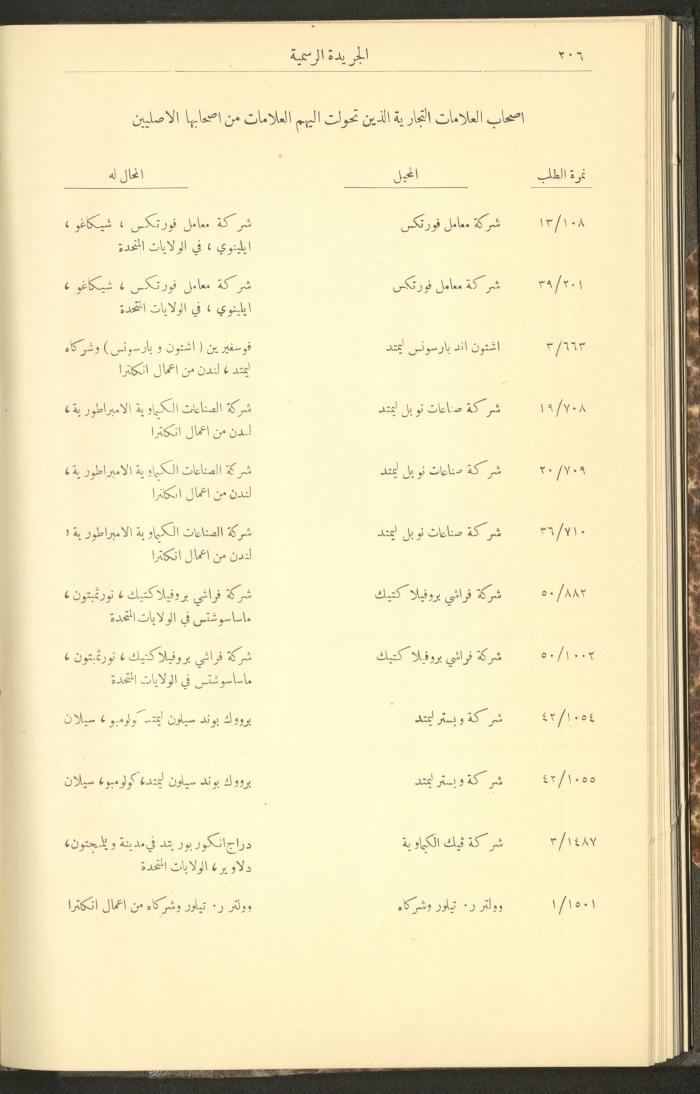 ٢٠٦ الجريدة الرسمية
اصحاب العلامات التجارية الذين تحولت اليهم العلامات من اصحابها الاصليين
نمرة الطلب المحيل المحال له
١٣/١٠٨ شركة معامل فورتكس شركة معامل فورتكس ، شيكاغو ،
ايلينوي ، في الولايات المتحدة
٣٩/٢٠١ شركة معامل فورتكس شركة معامل فورتكس ، شيكاغو ،
ايلينوي ، في الولايات المتحدة
٣/٦٦٣ اشتون اند بارسونس ليمتد فوسفيرين ( اشتون و بارسونس ) وشركاه
ليمتد ، لندن من اعمال انكلترا
١٩/٧٠٨ شركة صناعات نوبل ليمتد شركة الصناعات الكيماوية الامبراطورية ،
لندن من اعمال انكلترا
٢٠/٧٠٩ شركة صناعات نوبل ليمتد شركة الصناعات الكيماوية الامبراطورية ،
لندن من اعمال انكلترا
٣٦/٧١٠ شركة صناعات نوبل ليمتد شركة الصناعات الكيماوية الامبراطورية ،
لندن من اعمال انكلترا
٥٠/٨٨٢ شركة فراشي بروفيلاكتيك شركة فراشي بروفيلاكتيك ، نورثمبتون ،
ماساسوشتس في الولايات المتحدة
٥٠/١٠٠٢ شركة فراشي بروفيلاكتيك شركة فراشي بروفيلاكتيك ، نورثمبتون ،
ماساسوشتس في الولايات المتحدة
٤٢/١٠٥٤ شركة وبستر ليمتد برووك بوند سيلون ليمتد كولومبو ، سيلان
٤٢/١٠٥٥ شركة وبستر ليمتد برووك بوند سيلون ليمتد، كولومبو، سيلان
٣/١٤٨٧ شركة ڤيك الكيماوية دراج انكوربوريتد في مدينة ويلمجتون،
دلاوير ، الولايات المتحدة
١/١٥٠١ وولتر ر. تيلور وشركاه وولتر ر. تيلور وشركاه من اعمال انكلترا